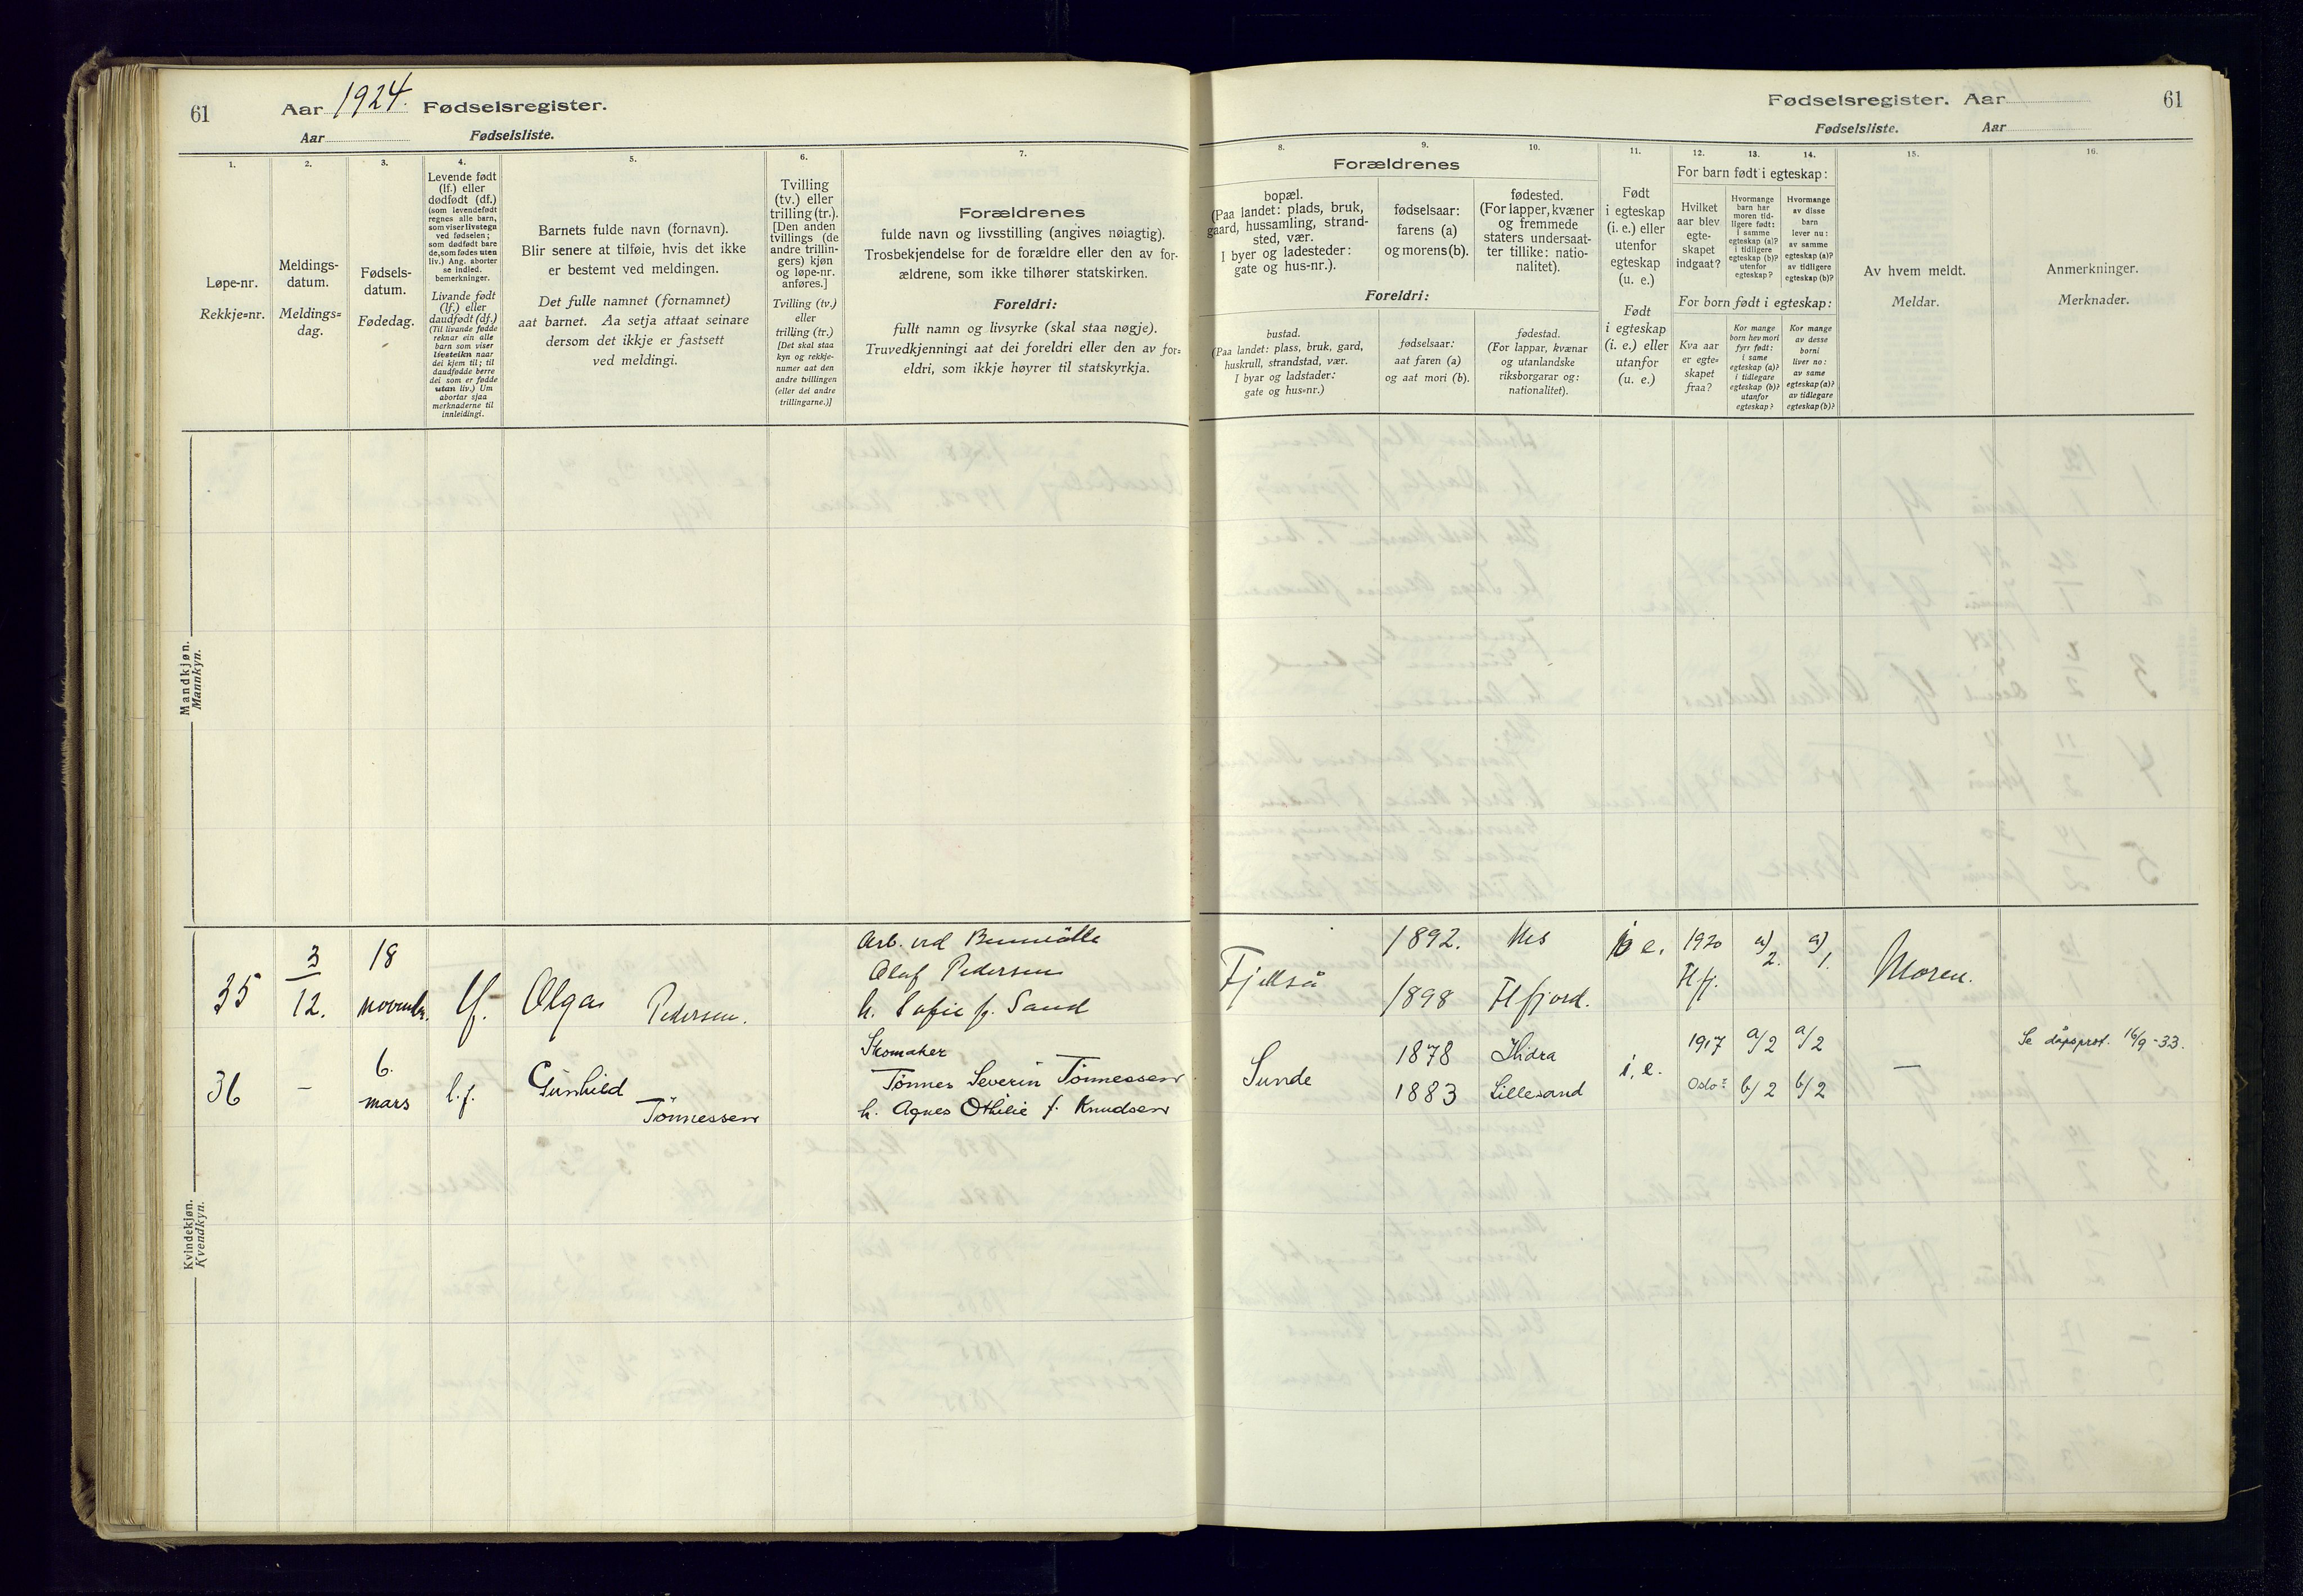 61
Aar 1924. Fødselsregister.
Aar Fødselsliste.
1.
2.
3.
4.
5.
6.
7.
Løpe-nr.
Rekkje=nr.
Meldings-
datum.
Meldings=
dag.
Fødsels-
datum.
Fødedag.
Levende født
(lf.) eller
dødfødt (df.)
(som levendefødt
regnes alle barn,
som viser livstegn
ved fødselen;
som dødfødt bare
de, som fødes uten
liv.) Ang. aborter
se indled.
bemerkninger.
Livande født
(lf.) eller
daudfødt (df.)
(Til livande fødde
reknar ein alle
barn som viser
livsteikn naar
dei kjem til; til
daudfødde berre
dei som er fødde
utan liv.) Um
abortar sjaa
merknaderne til
innleidingi.
Barnets fulde navn (fornavn).
Blir senere at tilføie, hvis det ikke
er bestemt ved meldingen.
Det fulle namnet (fornamnet)
aat barnet. Aa setja attaat seinare
dersom det ikkje er fastsett
ved meldingi.
Tvilling
(tv.) eller
trilling (tr.).
[Den anden
tvillings (de
andre trillin-
gers) kjøn
og løpe-nr.
anføres.]
Tvilling (tv.)
eller
trilling (tr.)
[Det skal staa
kyn og rekkje-
numer aat den
andre tvillingen
(eller dei andre
trillingarne.)]
Forældrenes
fulde navn og livsstilling (angives nøiagtig).
Trosbekjendelse for de forældre eller den av for-
ældrene, som ikke tilhører statskirken.
Foreldri:
fullt namn og livsyrke (skal staa nøgje).
Truvedkjenningi aat dei foreldri eller den av for=
eldri, som ikkje høyrer til statskyrkja.
Mandkjøn.
Mannkyn.
35
3
12.
18
novembr.
lf.
Olga
Pedersen.
Arb. ved
Olaf Pedersen
h. Sofie f. Sand
36
–
6.
mars
l.f.
Gunhild
Tönnessen
Skomaker
Tönnes Severin Tönnessen
h. Agnes Othilie f. Knudsen
Kvindekjøn.
Kvendkyn.
Fødselsregister. Aar
61
Fødselsliste. Aar
8.
9.
10.
11.
12.
13.
14.
15.
16.
Forældrenes
bopæl.
(Paa landet: plads, bruk,
gaard, hussamling, strand-
sted, vær.
I byer og ladesteder:
gate og hus-nr.).
fødselsaar:
farens (a)
og morens (b).
fødested.
(For lapper, kvæner
og fremmede
staters undersaat-
ter tillike: natio-
nalitet).
Foreldri:
bustad.
(Paa landet: plass, bruk, gard,
huskrull, strandstad, vær.
I byar og ladstader:
gate og hus=nr.)
fødselsaar:
aat faren (a)
og aat mori (b).
fødestad.
(For lappar, kvænar
og utanlandske
riksborgarar og:
nationalitet).
Født
i egteskap
(i. e.) eller
utenfor
egteskap
(u. e.)
Født
i egteskap
(i. e.) eller
utanfor
(u. e.)
For barn født i egteskap:
Hvilket
aar blev
egte-
skapet
indgaat?
Hvormange
barn har
moren tid-
ligere født:
i samme
egteskap (a)?
i tidligere
egteskap (b)?
utenfor
egteskap?
Hvormange
av disse
barn
lever nu:
av samme
egteskap (a)?
av tidligere
egteskap (b)?
For born født i egteskap:
Kva aar
er egte=
skapet
fraa?
Kor mange
born hev mori
fyrr født:
i same
egteskap (a)?
i tidlegare
egteskap (b)?
utanfor
egteskap?
Kor mange
av desse
borni
liver no:
av same
egteskap (a)?
av tidlegare
egteskap (b)?
Av hvem meldt.
Meldar.
Anmerkninger.
Merknader.
Fjellså
1892.
1898
Nes
Flfjord.
i e.
1920
Flfj.
a)
2.
a)
1.
Moren.
Sunde
1878
1883
Hidra
Lillesand
i. e.
1917
Oslo?
a/2
b/2
a/2
b/2
–
Se dåpsprot. 16/9 -33.